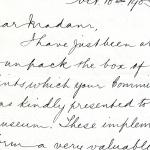 Oct. 10th 190
ear Madam,
I have just been a
unpack the box of
ints which your Commi
as kindly presented to
useum. These implem
orm a very valuable